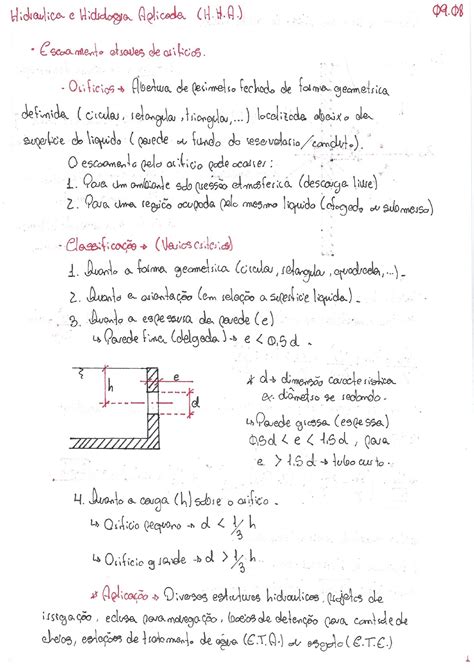 Hidraulica e Hidrologia Aplicada (H.H.A.) 09.08
· Escoamento atraves de orificios.
· Orificios → Abertura de perimetro fechado de forma geometrica
definida (circular, retangular, triangular,...) localizada abaixo da
superficie do liquido (parede ou fundo do reservatorio/conduto).
O escoamento pelo orificio pode ocorrer:
1. Para um ambiente sob pressão atmosferica (descarga livre)
2. Para uma região ocupada pelo mesmo liquido (afogado ou submerso)
· Classificação → (Varios criterios)
1. Quanto a forma geometrica (circular, retangular, quadrada,...).
2. Quanto a orientação (em relação a superficie liquida).
3. Quanto a espessura da parede (e)
↳ Parede fina (delgada) → e < 0,5d.
h
e
d
* d → dimensão caracteristica
ex. diâmetro se redondo.
↳ Parede grossa (espessa)
0,5d < e < 1.5d, para
e > 1.5d → tubo curto.
4. Quanto a carga (h) sobre o orificio.
↳ Orificio pequeno → d < 1/3 h
↳ Orificio grande → d > 1/3 h.
* Aplicação → Diversas estruturas hidraulicas, projetos de
irrigação, eclusa para navegação, bacias de detenção para controle de
cheias, estações de tratamento de agua (E.T.A.) ou esgoto (E.T.E.)